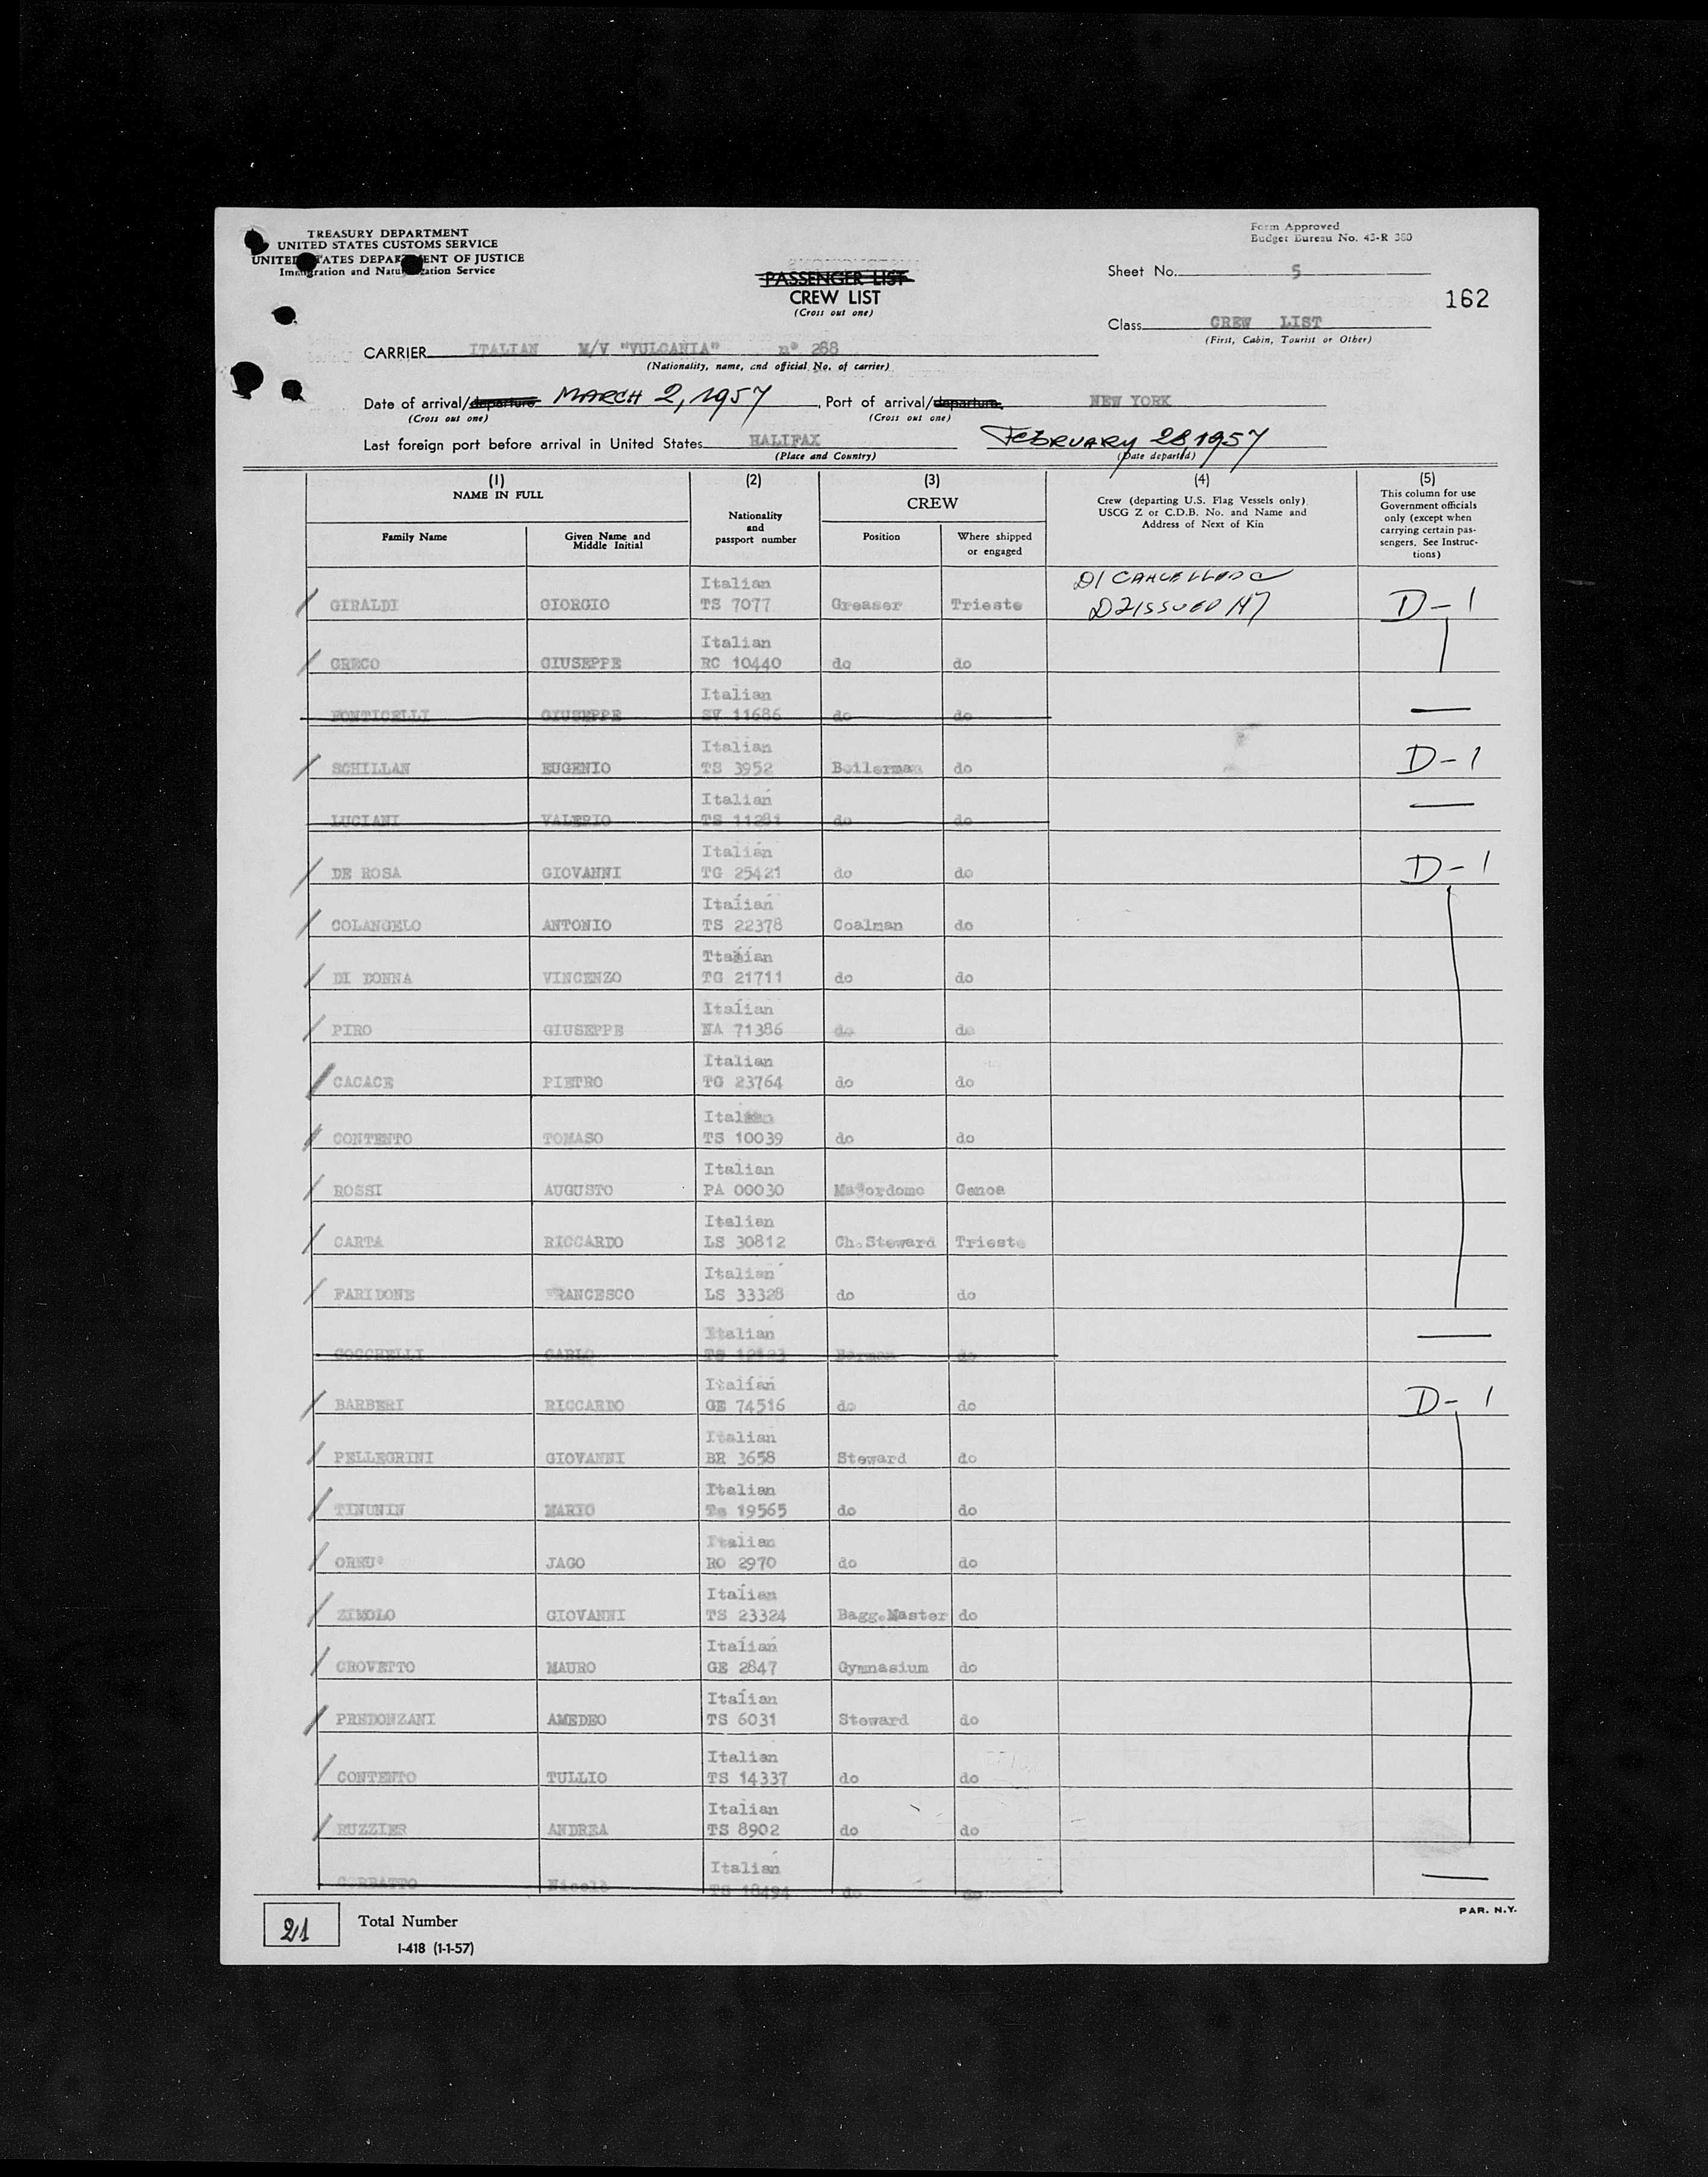 TREASURY DEPARTMENT
UNITED STATES CUSTOMS SERVICE
UNITED STATES DEPARTMENT OF JUSTICE
Immigration and Naturalization Service
Form Approved
Budget Bureau No. 43-R 380
PASSENGER LIST
CREW LIST
(Cross out one)
Sheet No. 5
162
Class CREW LIST
(First, Cabin, Tourist or Other)
CARRIER ITALIAN M/V "VULCANIA" n° 288
(Nationality, name, and official No. of carrier)
Date of arrival/departure MARCH 2, 1957, Port of arrival/departure NEW YORK
(Cross out one) (Cross out one)
Last foreign port before arrival in United States HALIFAX FEBRUARY 28 1957
(Place and Country) (Date departed)
(1) (2) (3) (4) (5)
NAME IN FULL
Family Name
Given Name and Middle Initial
Nationality and passport number
CREW
Position
Where shipped or engaged
Crew (departing U.S. Flag Vessels only)
USCG Z or C.D.B. No. and Name and
Address of Next of Kin
This column for use
Government officials
only (except when
carrying certain pas-
sengers. See Instruc-
tions)
Italian D1 CANCELLED
GIRALDI GIORGIO TS 7077 Greaser Trieste D2 ISSUED D-1
Italian
GRECO GIUSEPPE RC 10440 do do
Italian
FONTICELLI GIUSEPPE SV 11686 do do
Italian
SCHILLAN EUGENIO TS 3952 Boilerman do D-1
Italian
LUCIANI VALERIO TS 11281 do do
Italian
DE ROSA GIOVANNI TG 25421 do do D-1
Italian
COLANGELO ANTONIO TS 22378 Coalman do
Ttalian
DI DONNA VINCENZO TG 21711 do do
Italian
PIRO GIUSEPPE NA 71386 do do
Italian
CACACE PIETRO TG 23764 do do
Italian
CONTENTO TOMASO TS 10039 do do
Italian
ROSSI AUGUSTO PA 00030 Majordomo Genoa
Italian
CARTA RICCARDO LS 30812 Ch.Steward Trieste
Italian
FARIDONE FRANCESCO LS 33328 do do
Italian
COCCHELLI CARLO TS 12123 Barman do
Italian
BARBERI RICCARDO GE 74516 do do D-1
Italian
PELLEGRINI GIOVANNI BR 3658 Steward do
Italian
TINUNIN MARIO Ts 19565 do do
Italian
OREU° JAGO RO 2970 do do
Italian
ZIMOLO GIOVANNI TS 23324 Bagg.Master do
Italian
CROVETTO MAURO GE 2847 Gymnasium do
Italian
PREDONZANI AMEDEO TS 6031 Steward do
Italian
CONTENTO TULLIO TS 14337 do do
Italian
RUZZIER ANDREA TS 8902 do do
Italian
Nicolò TS 18494 do do
21 Total Number
I-418 (1-1-57)
PAR. N.Y.